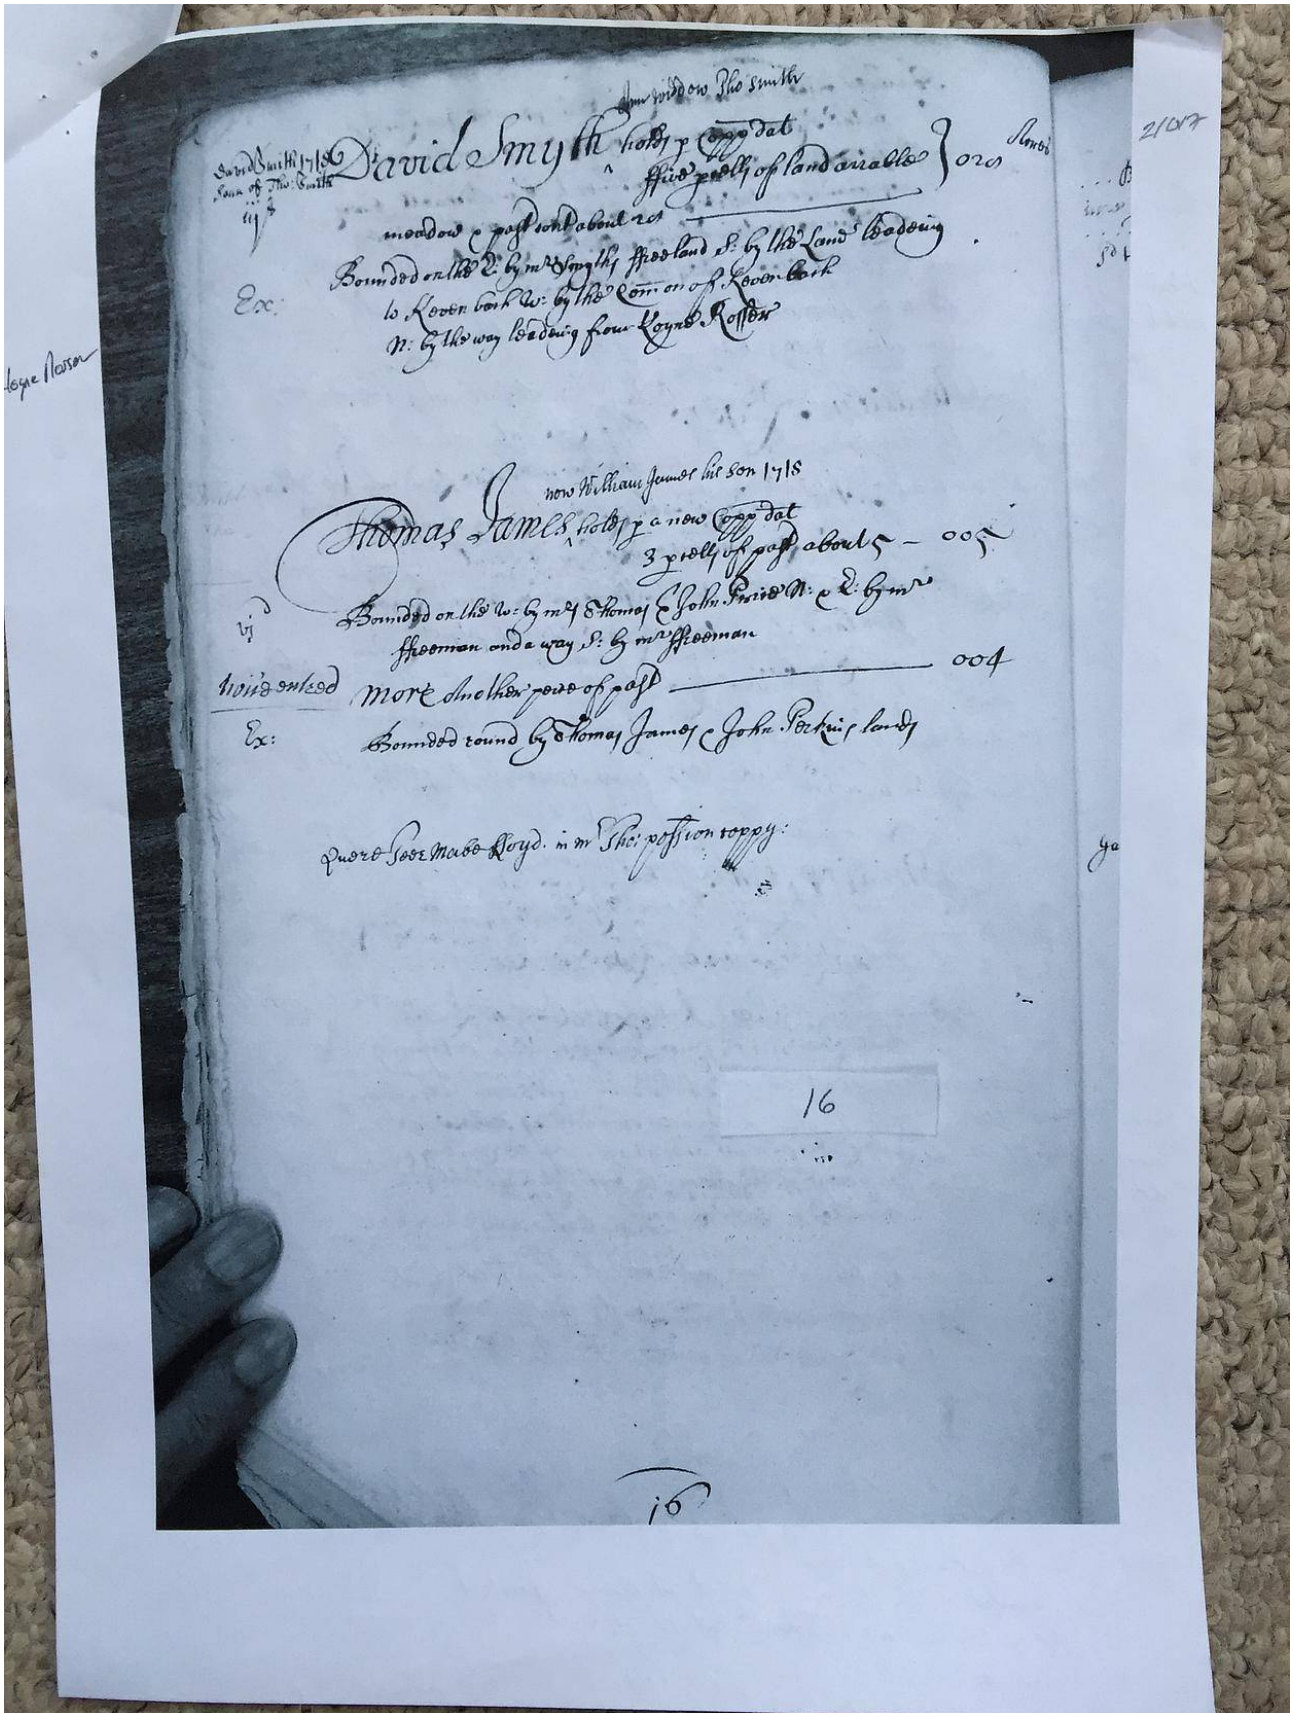 Ann widdow Tho Smith
David Smith 1718
Sonn of Tho: Smith
David Smyth holds p Copp dat
ffive pcells of land arrable
Acres
meadow & past cont about
Bounded on the E: by mr Smyths ffreeland S: by the Lane leadeing
to Keven bach W: by the Com̄on of Keven bach
N: by the way leadeing from Royne Rosser
Ex:
now William James his Son 1718
Thomas James holds p a new Copp dat
3 pcells of past about 5 — 005
vj d
Bounded on the W: by mrs Thomas & John Price N: & E: by mr
ffreeman and a way S: by mr ffreeman
More Another peice of past — 004
Ex:
Bounded round by Thomas James & John Perkins lands
Quere Jeer Mabe lloyd. in mr Tho: possion coppy:
16
16
21017